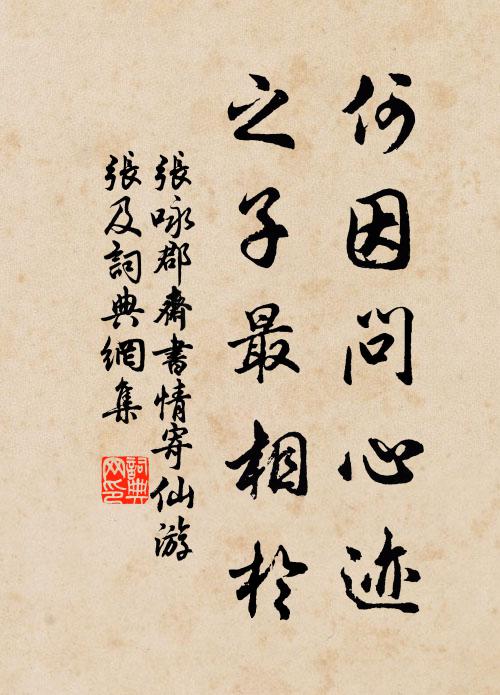 何因問心迹
之子最相於
張咏郡齋書情寄仙游
張及詞典網集
詞典網印